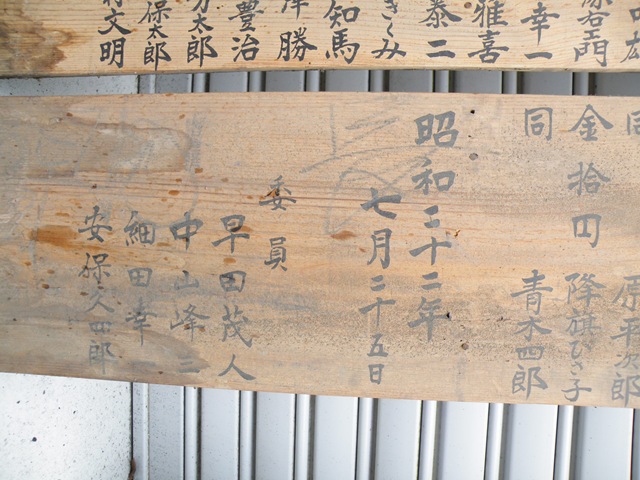 雅喜
泰二
きくみ
知馬
勝
豊治
太郎
保太郎
文明
同
金拾円 降旗ひさ子
同 青木四郎
昭和三十二年
七月二十五日
委員
早田茂人
中山峰三
細田幸一
安保久四郎